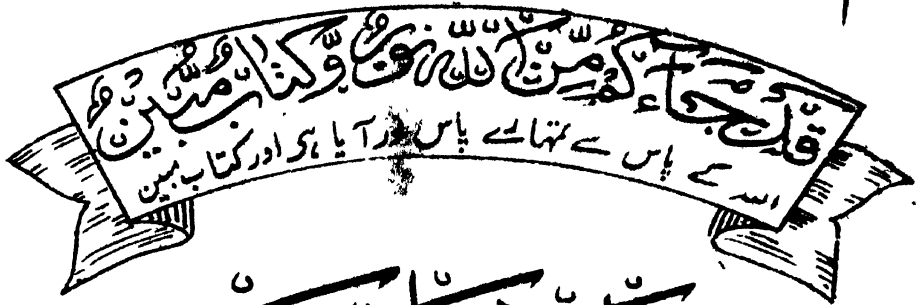 قَدْ جَآءَكُمْ مِّنَ اللّٰهِ نُوْرٌ وَّكِتَابٌ مُّبِيْنٌ
اللہ کے پاس سے تمہارے پاس نور آیا ہے اور کتاب مبین